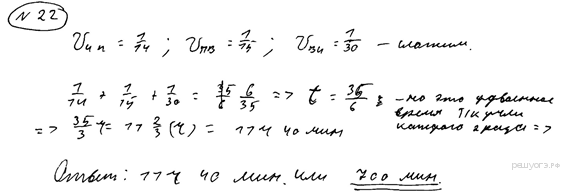 N 22
V и п = 1/14 ; V пв = 1/15 ; V ви = 1/30 – сложим.
1/14 + 1/15 + 1/30 = 6/35 => t = 35/6 – но это удвоенное
время т/к учли
каждого 2 раза =>
=> 35/3 ч = 11 2/3 (ч) = 11 ч 40 мин
Ответ: 11 ч 40 мин. или 700 мин.
решуогэ.рф